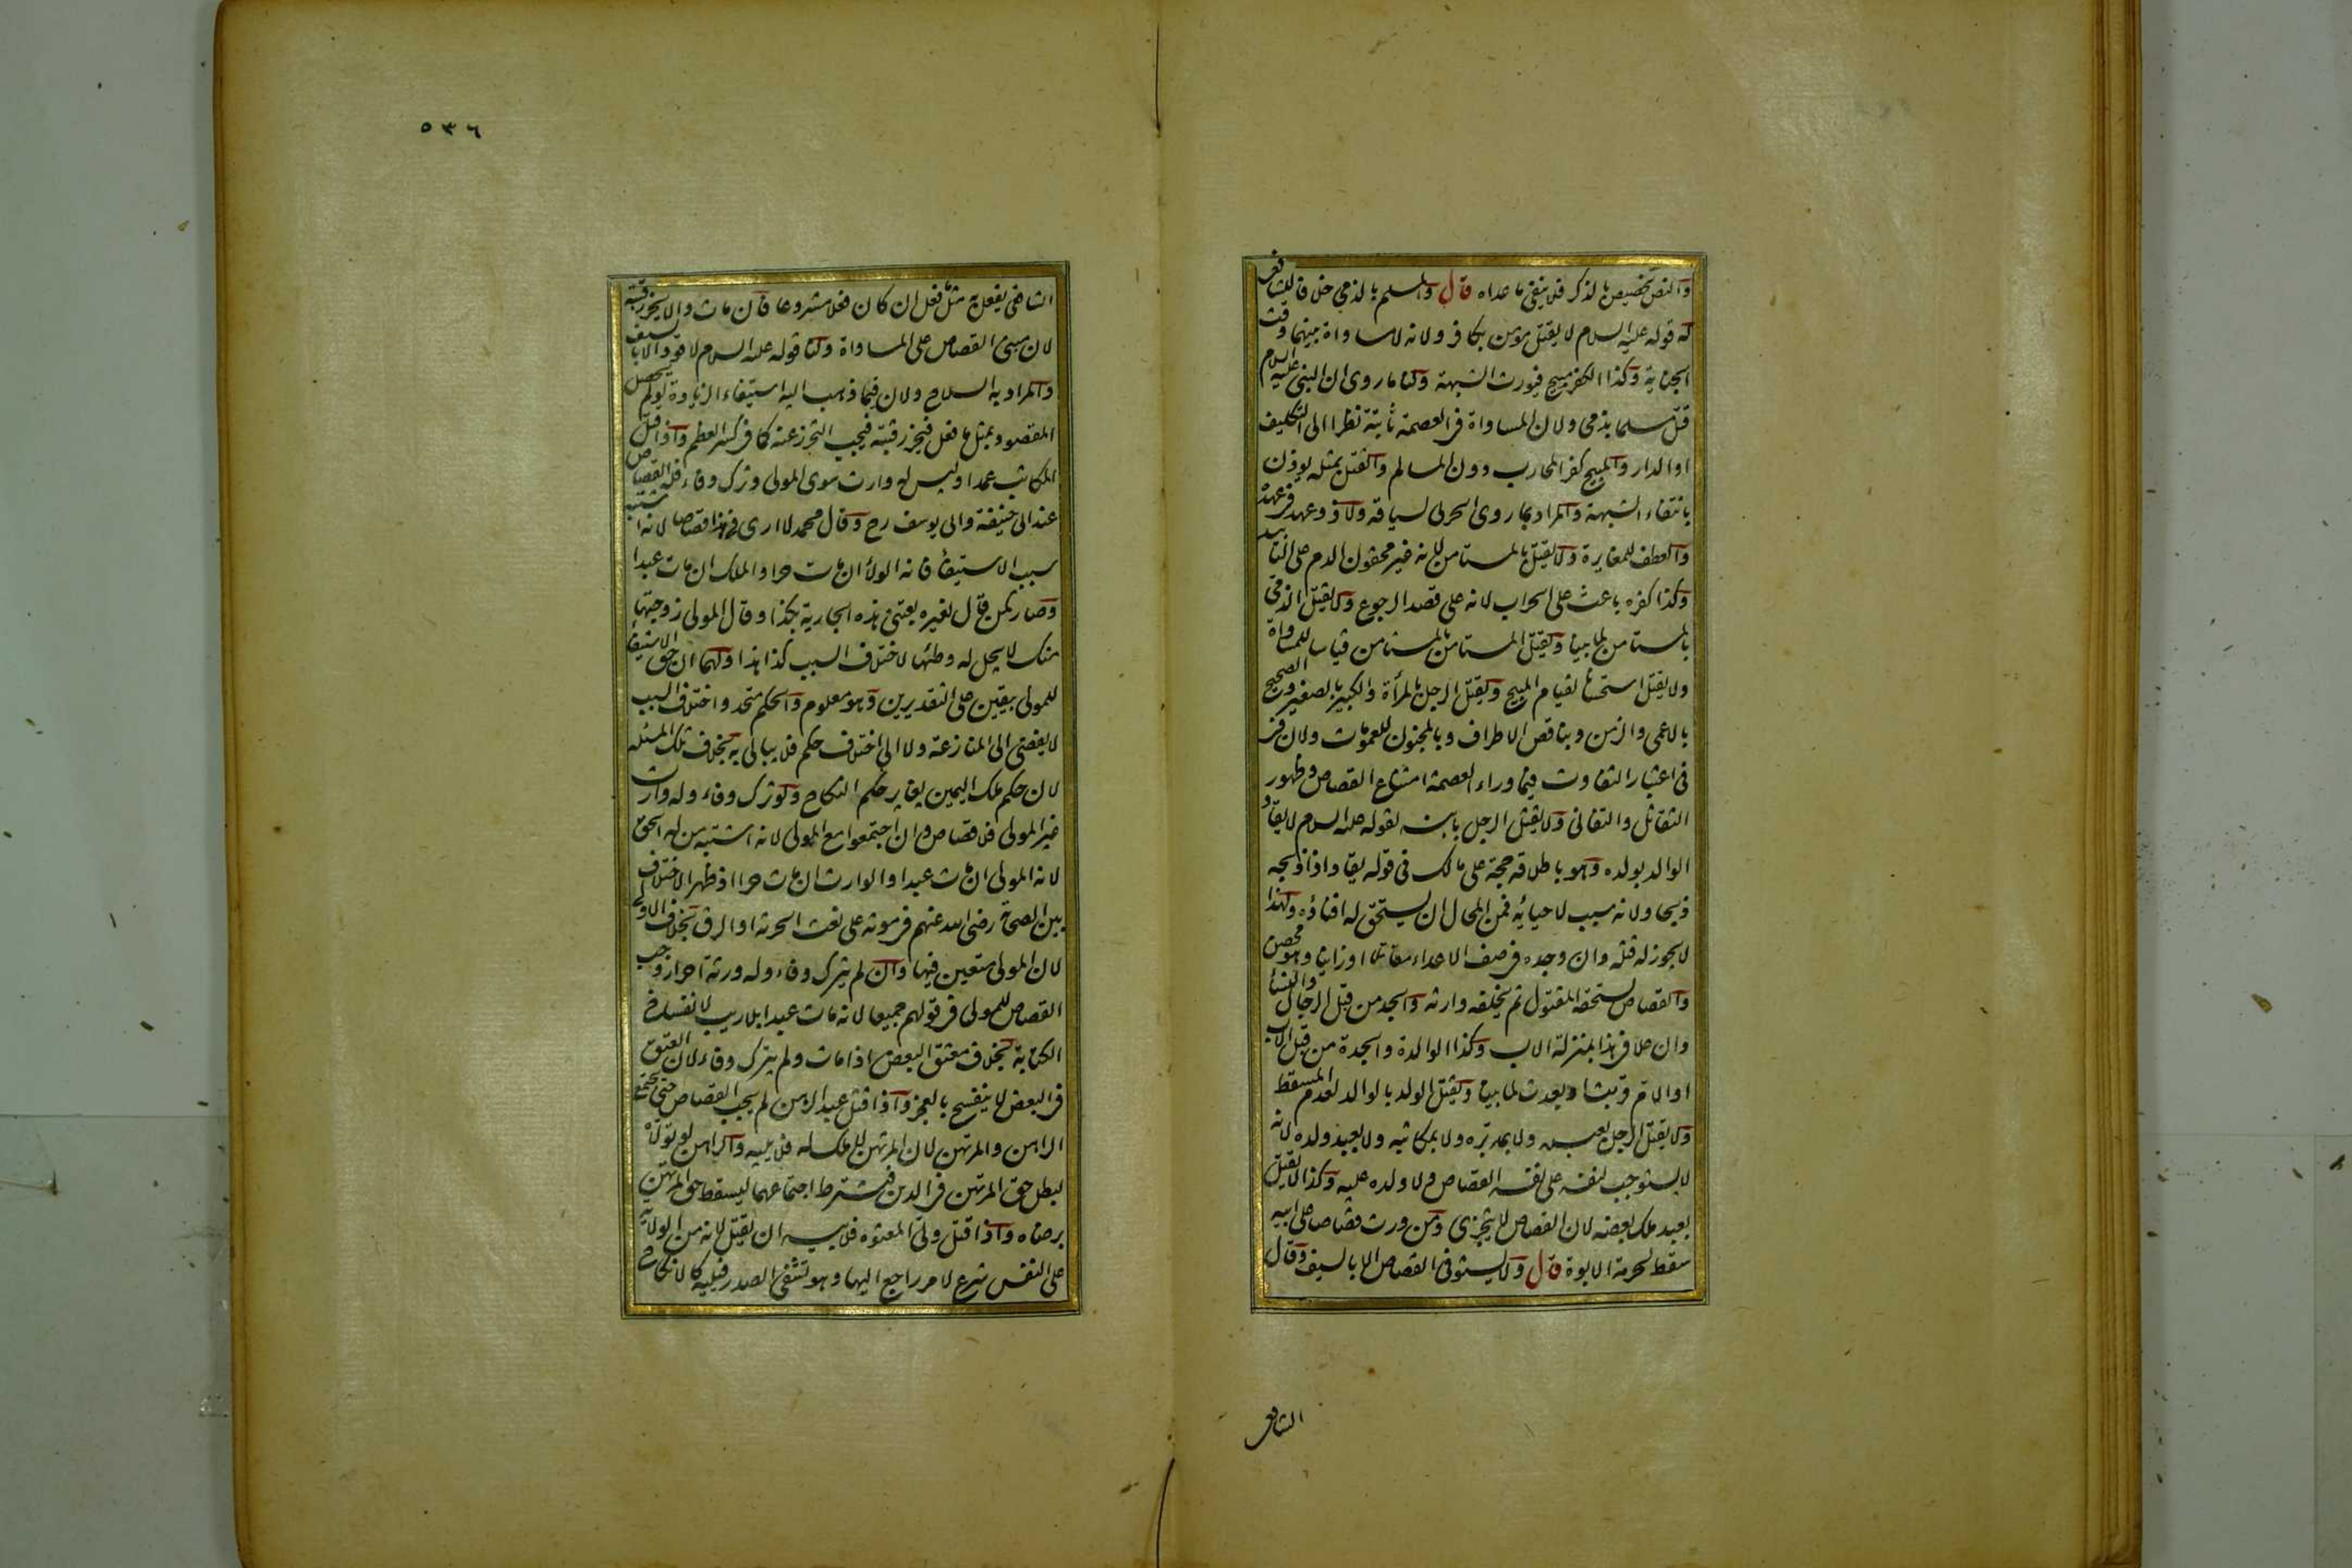 والنص تخصيص بالذكر فلا ينفي ما عداه قال والمسلم بالذمي خلافا للشافعي
له قوله عليه السلام لا يقتل مؤمن بكافر ولانه لا مساواة بينهما وقت
الجناية وكذا الكفر مبيح فيورث الشبهة ولنا ما روى ان النبي عليه السلام
قتل مسلما بذمي ولان المساواة في العصمة ثابتة نظرا الى التكليف
او الدار والمبيح كفر المحارب دون المسالم والقتل بمثله يوذن
بانتفاء الشبهة والمراد بما روى الحربي لسياقه ولا ذو عهد في عهده
والعطف للمغايرة ولا يقتل بالمستامن لانه غير محقون الدم على التابيد
وكذا كفره باعث على الحراب لانه على قصد الرجوع ولا يقتل الذمي
بالمستامن لما بينا ويقتل المستامن بالمستامن قياسا للمساواة
ولا يقتل استحسانا لقيام المبيح ويقتل الرجل بالمرأة والكبير بالصغير والصحيح
بالاعمى والزمن وبناقص الاطراف وبالمجنون للعمومات ولان
في اعتبار التفاوت فيما وراء العصمة امتناع القصاص وظهور
التقاتل والتفاني ولا يقتل الرجل بابنه لقوله عليه السلام لا يقاد
الوالد بولده وهو باطلاقه حجة على مالك في قوله يقاد اذا ذبحه
ذبحا ولانه سبب لاحيائه فمن المحال ان يستحق له افناؤه ولهذا
لا يجوز له قتله وان وجده في صف الاعداء مقاتلا او زانيا وهو محصن
والقصاص يستحقه المقتول ثم يخلفه وارثه والجد من قبل الرجال والنساء
وان علا في هذا بمنزلة الاب وكذا الوالدة والجدة من قبل الاب
او الام قربت او بعدت لما بينا ويقتل الولد بالوالد لعدم المسقط
ولا يقتل الرجل بعبده ولا بمدبره ولا بمكاتبه ولا بعبد ولده لانه
لا يستوجب لنفسه على نفسه القصاص ولا ولده عليه وكذا لا يقتل
بعبد ملك بعضه لان القصاص لا يتجزى ومن ورث قصاصا على ابيه
سقط لحرمة الابوة قال ولا يستوفى القصاص الا بالسيف وقال
الشافعي
٥٣٦
الشافعي يفعل به مثل ما فعل ان كان فعلا مشروعا فان مات والا يحز رقبته
لان مبنى القصاص على المساواة ولنا قوله عليه السلام لا قود الا بالسيف
والمراد به السلاح ولان فيما ذهب اليه استيفاء الزيادة لو لم يحصل
المقصود بمثل ما فعل فيحز رقبته فيجب التحرز عنه كما في كسر العظم واذا قتل
المكاتب عمدا وليس له وارث سوى المولى وترك وفاء فله القصاص
عند ابي حنيفة وابي يوسف رح وقال محمد لا ارى في هذا قصاصا لانه اشتبه
سبب الاستيفاء فانه الولاء ان مات حرا والملك ان مات عبدا
وصار كمن قال لغيره بعتني هذه الجارية بكذا وقال المولى زوجتها
منك لا يحل له وطئها لاختلاف السبب كذا هذا ولهما ان حق الاستيفاء
للمولى بيقين على التقديرين وهو معلوم والحكم متحد واختلاف السبب
لا يفضي الى المنازعة ولا الى اختلاف حكم فلا يبالى به بخلاف تلك المسئلة
لان حكم ملك اليمين يغاير حكم النكاح ولو ترك وفاء وله وارث
غير المولى فلا قصاص وان اجتمعوا مع المولى لانه اشتبه من له الحق
لانه المولى ان مات عبدا والوارث ان مات حرا اذ ظهر الاختلاف
بين الصحابة رضي الله عنهم في موته على نعت الحرية او الرق بخلاف الاولى
لان المولى متعين فيها وان لم يترك وفاء وله ورثة احرار وجب
القصاص للمولى في قولهم جميعا لانه مات عبدا بلا ريب لانفساخ
الكتابة بخلاف معتق البعض اذا مات ولم يترك وفاء لان العتق
في البعض لا ينفسخ بالعجز واذا قتل عبد الرهن لم يجب القصاص حتى يجتمع
الراهن والمرتهن لان المرتهن لا ملك له فلا يليه والراهن لو تولاه
لبطل حق المرتهن في الدين فيشترط اجتماعهما ليسقط حق المرتهن
برضاه واذا قتل ولي المعتوه فلابيه ان يقتل لانه من الولاية
على النفس شرع لامر راجع اليها وهو تشفي الصدر فيليه كالانكاح